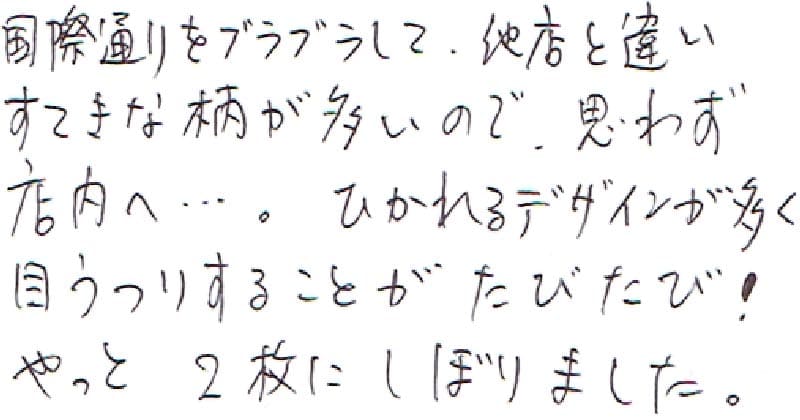 国際通りをブラブラして、他店と違い
すてきな柄が多いので、思わず
店内へ…。ひかれるデザインが多く
目うつりすることがたびたび！
やっと2枚にしぼりました。